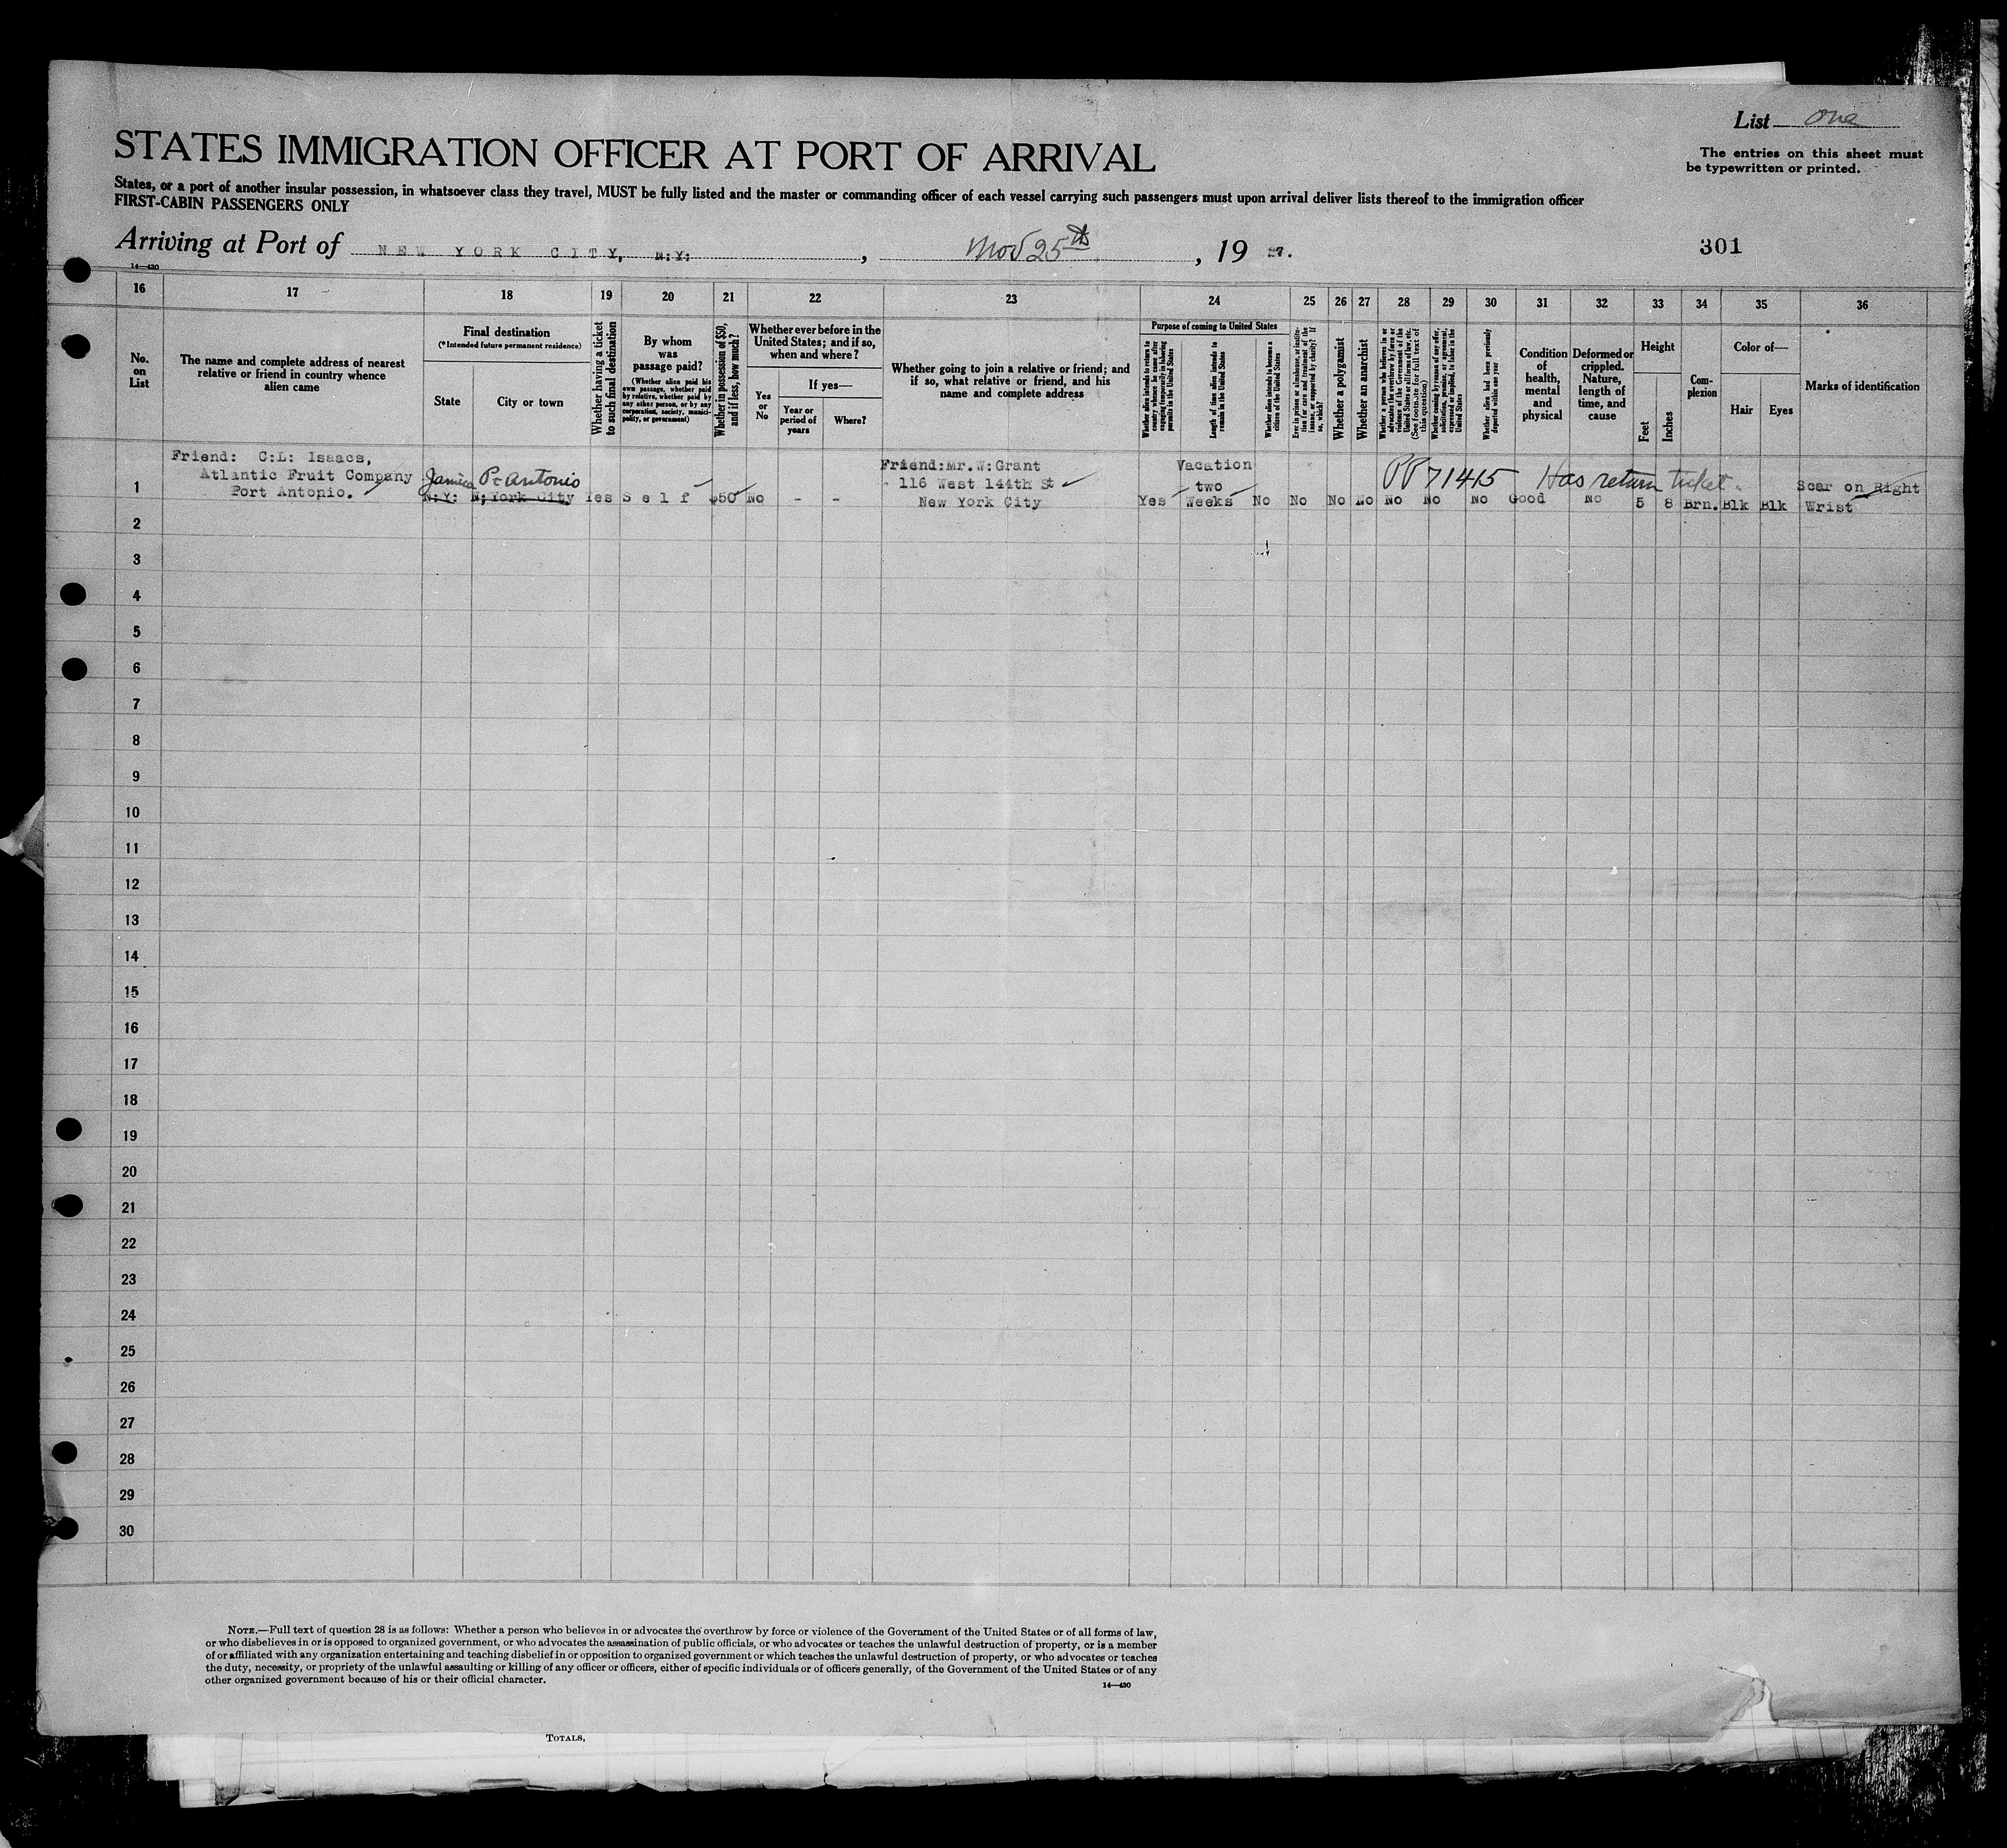 List one
The entries on this sheet must
be typewritten or printed.
STATES IMMIGRATION OFFICER AT PORT OF ARRIVAL
States, or a port of another insular possession, in whatsoever class they travel, MUST be fully listed and the master or commanding officer of each vessel carrying such passengers must upon arrival deliver lists thereof to the immigration officer
FIRST-CABIN PASSENGERS ONLY
Arriving at Port of NEW YORK CITY, N:Y: , Nov 25th , 19 27. 301
14—430
16 17 18 19 20 21 22 23 24 25 26 27 28 29 30 31 32 33 34 35 36
No. on List
The name and complete address of nearest
relative or friend in country whence
alien came
Final destination
(*Intended future permanent residence)
State
City or town
Whether having a ticket
to such final destination
By whom
was
passage paid?
(Whether alien paid his
own passage, whether paid
by relative, whether paid by
any other person, or by any
corporation, society, munici-
pality, or government)
Whether in possession of $50,
and if less, how much?
Whether ever before in the
United States; and if so,
when and where?
Yes
or
No
If yes—
Year or
period of
years
Where?
Whether going to join a relative or friend; and
if so, what relative or friend, and his
name and complete address
Purpose of coming to United States
Whether alien intends to return to
country whence he came after
engaging temporarily in laboring
pursuits in the United States
Length of time alien intends to
remain in the United States
Whether alien intends to become a
citizen of the United States
Ever in prison or almshouse, or institu-
tion for care and treatment of the
insane, or supported by charity? If
so, which?
Whether a polygamist
Whether an anarchist
Whether a person who believes in or
advocates the overthrow by force or
violence of the Government of the
United States or all forms of law, etc.
(See footnote for full text of
this question)
Whether coming by reason of any offer,
solicitation, promise, or agreement,
expressed or implied, to labor in the
United States
Whether alien had been previously
deported within one year
Condition
of
health,
mental
and
physical
Deformed or
crippled.
Nature,
length of
time, and
cause
Height
Feet
Inches
Com-
plexion
Color of—
Hair
Eyes
Marks of identification
Friend: C:L: Isaacs,
Atlantic Fruit Company
Port Antonio.
1
Jamica Pt Antonio
N:Y: N;York City Yes Self $50 No - -
Friend:Mr.W:Grant
116 West 144th St
New York City
Vacation
two
Yes Weeks No No No No No No No Good No 5 8 Brn. Blk Blk
PP 71415 Has return ticket.
Scar on Right
Wrist
2
3
4
5
6
7
8
9
10
11
12
13
14
15
16
17
18
19
20
21
22
23
24
25
26
27
28
29
30
NOTE.—Full text of question 28 is as follows: Whether a person who believes in or advocates the overthrow by force or violence of the Government of the United States or of all forms of law,
or who disbelieves in or is opposed to organized government, or who advocates the assassination of public officials, or who advocates or teaches the unlawful destruction of property, or is a member
of or affiliated with any organization entertaining and teaching disbelief in or opposition to organized government or which teaches the unlawful destruction of property, or who advocates or teaches
the duty, necessity, or propriety of the unlawful assaulting or killing of any officer or officers, either of specific individuals or of officers generally, of the Government of the United States or of any
other organized government because of his or their official character.
14—430
TOTALS,